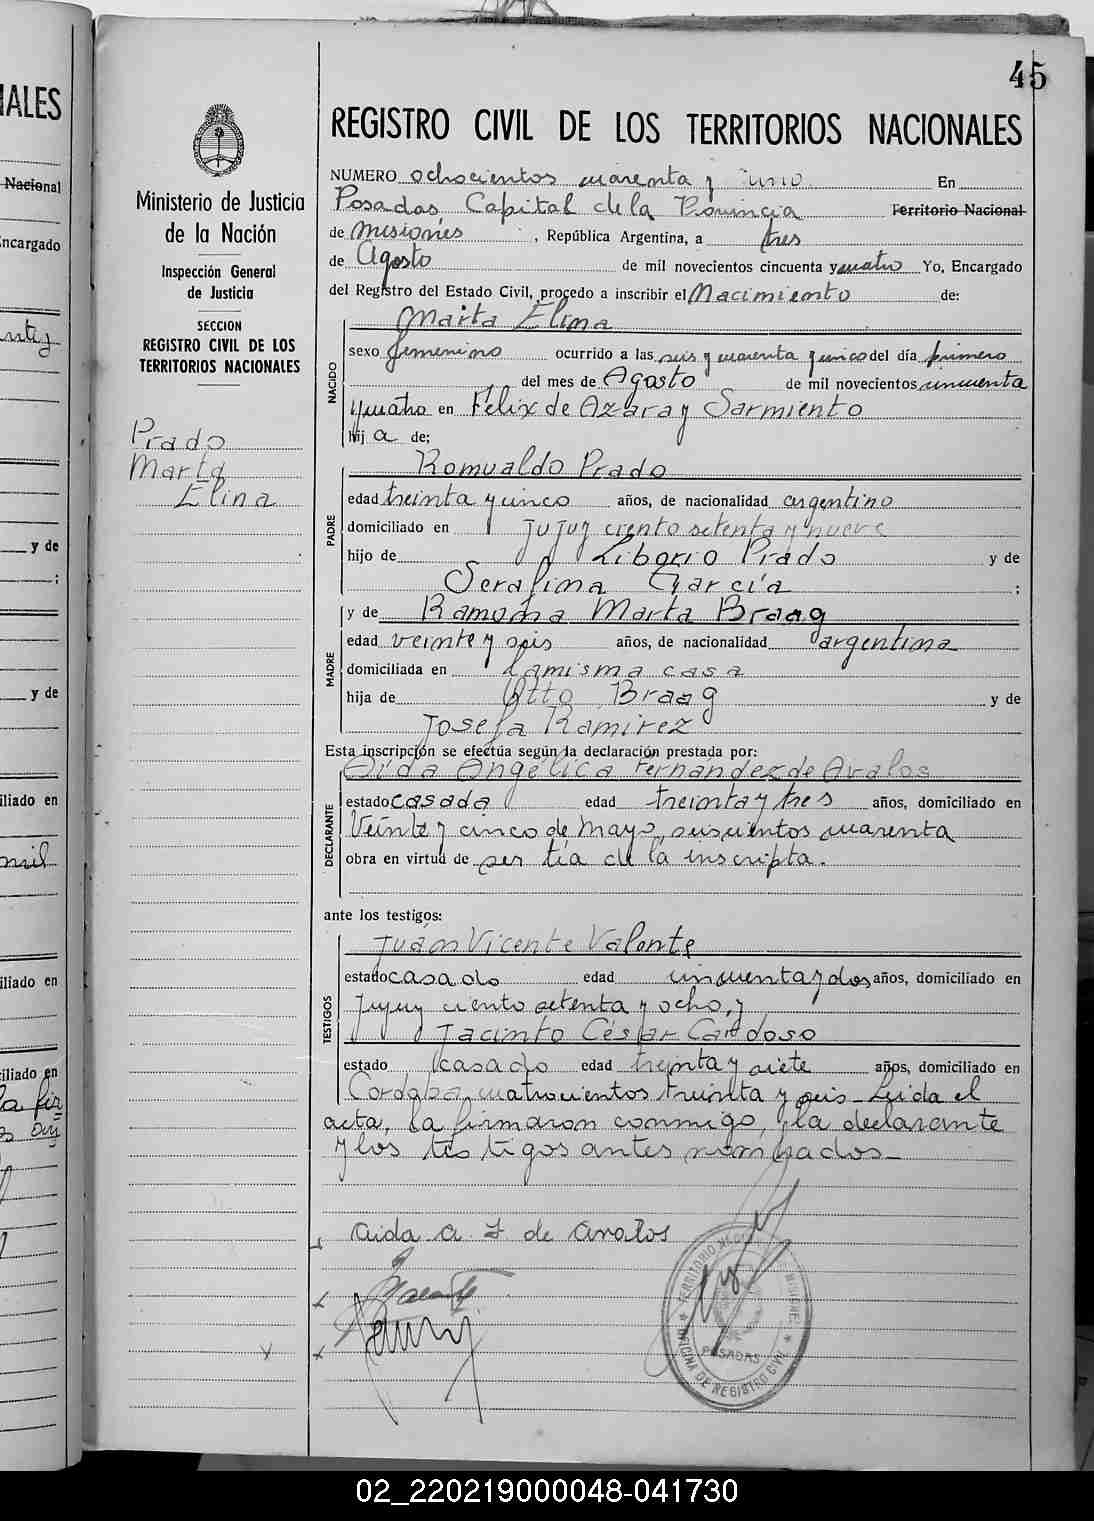 45
IALES
Nacional
Encargado
y de
y de
iliado en
mil
iliado en
iliado en
la fir
Ministerio de Justicia
de la Nación
Inspección General
de Justicia
SECCION
REGISTRO CIVIL DE LOS
TERRITORIOS NACIONALES
Prado
Marta
Elina
REGISTRO CIVIL DE LOS TERRITORIOS NACIONALES
NUMERO ochocientos cuarenta y uno En
Posadas, Capital de la Provincia Territorio Nacional
de Misiones, República Argentina, a tres
de Agosto de mil novecientos cincuenta y cuatro Yo, Encargado
del Registro del Estado Civil, procedo a inscribir el Nacimiento de:
NACIDO
Marta Elina
sexo femenino ocurrido a las seis y cuarenta y cinco del día primero
del mes de Agosto de mil novecientos cincuenta
y cuatro en Félix de Azara y Sarmiento
hij a de;
PADRE
Romualdo Prado
edad treinta y cinco años, de nacionalidad argentino
domiciliado en Jujuy ciento setenta y nueve
hijo de Liborio Prado y de
Serafina García ;
MADRE
y de Ramona Marta Braag
edad veinte y seis años, de nacionalidad argentina
domiciliada en la misma casa
hija de Otto Braag y de
Josefa Ramirez
Esta inscripción se efectúa según la declaración prestada por:
DECLARANTE
Aida Angélica Fernández de Avalos
estado casada edad treinta y tres años, domiciliado en
Veinte y cinco de Mayo, seiscientos cuarenta
obra en virtud de ser tía de la inscripta.
ante los testigos:
TESTIGOS
Juan Vicente Valente
estado casado edad cincuenta y dos años, domiciliado en
Jujuy ciento setenta y ocho, y
Jacinto César Cardoso
estado casado edad treinta y siete años, domiciliado en
Córdoba, cuatrocientos treinta y seis_ Leida el
acta, la firmaron conmigo, la declarante
y los testigos antes nombrados_
Aida A. F. de Avalos
OFICINA DE REGISTRO CIVIL
POSADAS
02_220219000048-041730